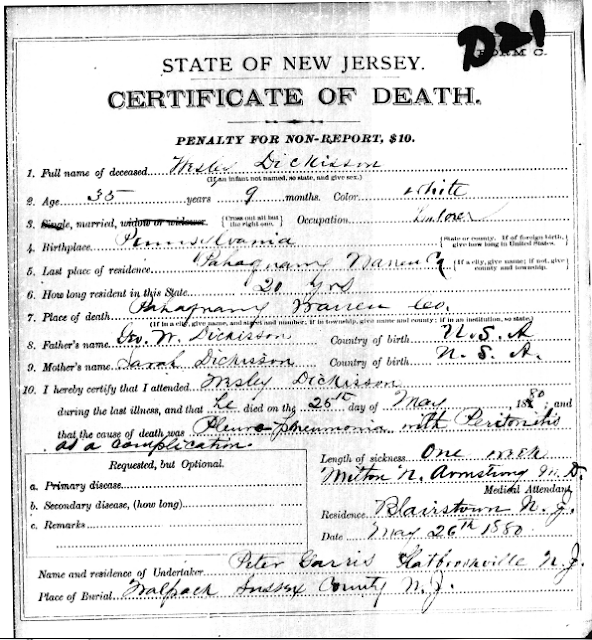 D21
FORM C.
STATE OF NEW JERSEY.
CERTIFICATE OF DEATH.
PENALTY FOR NON-REPORT, $10.
1. Full name of deceased Wesley Dickisson
(If an infant not named, so state, and give sex.)
2. Age 35 years 9 months. Color White
3. Single, married, widow or widower. {Cross out all but the right one.} Occupation Laborer
4. Birthplace Pennsylvania {State or county. If of foreign birth, give how long in United States.}
5. Last place of residence Pahaquarry Warren Co. {If a city, give name; if not, give county and township.}
6. How long resident in this State 20 yrs
7. Place of death Pahaquarry Warren Co.
(If in a city, give name, and street and number; if in township, give name and county; if in an institution, so state)
8. Father's name Geo. W. Dickisson Country of birth U. S. A
9. Mother's name Sarah Dickisson Country of birth U. S. A.
10. I hereby certify that I attended Wesley Dickisson
during the last illness, and that he died on the 25th day of May 1880; and
that the cause of death was Pleuro-pneumonia with Peritonitis
as a complication
Length of sickness One week
Requested, but Optional.
a. Primary disease
b. Secondary disease, (how long)
c. Remarks
Milton N. Armstrong M. D.
Medical Attendant
Residence Blairstown N. J.
Date May 26th 1880.
Name and residence of Undertaker Peter Garris Flatbrookville N. J.
Place of Burial Walpack Sussex County N. J.